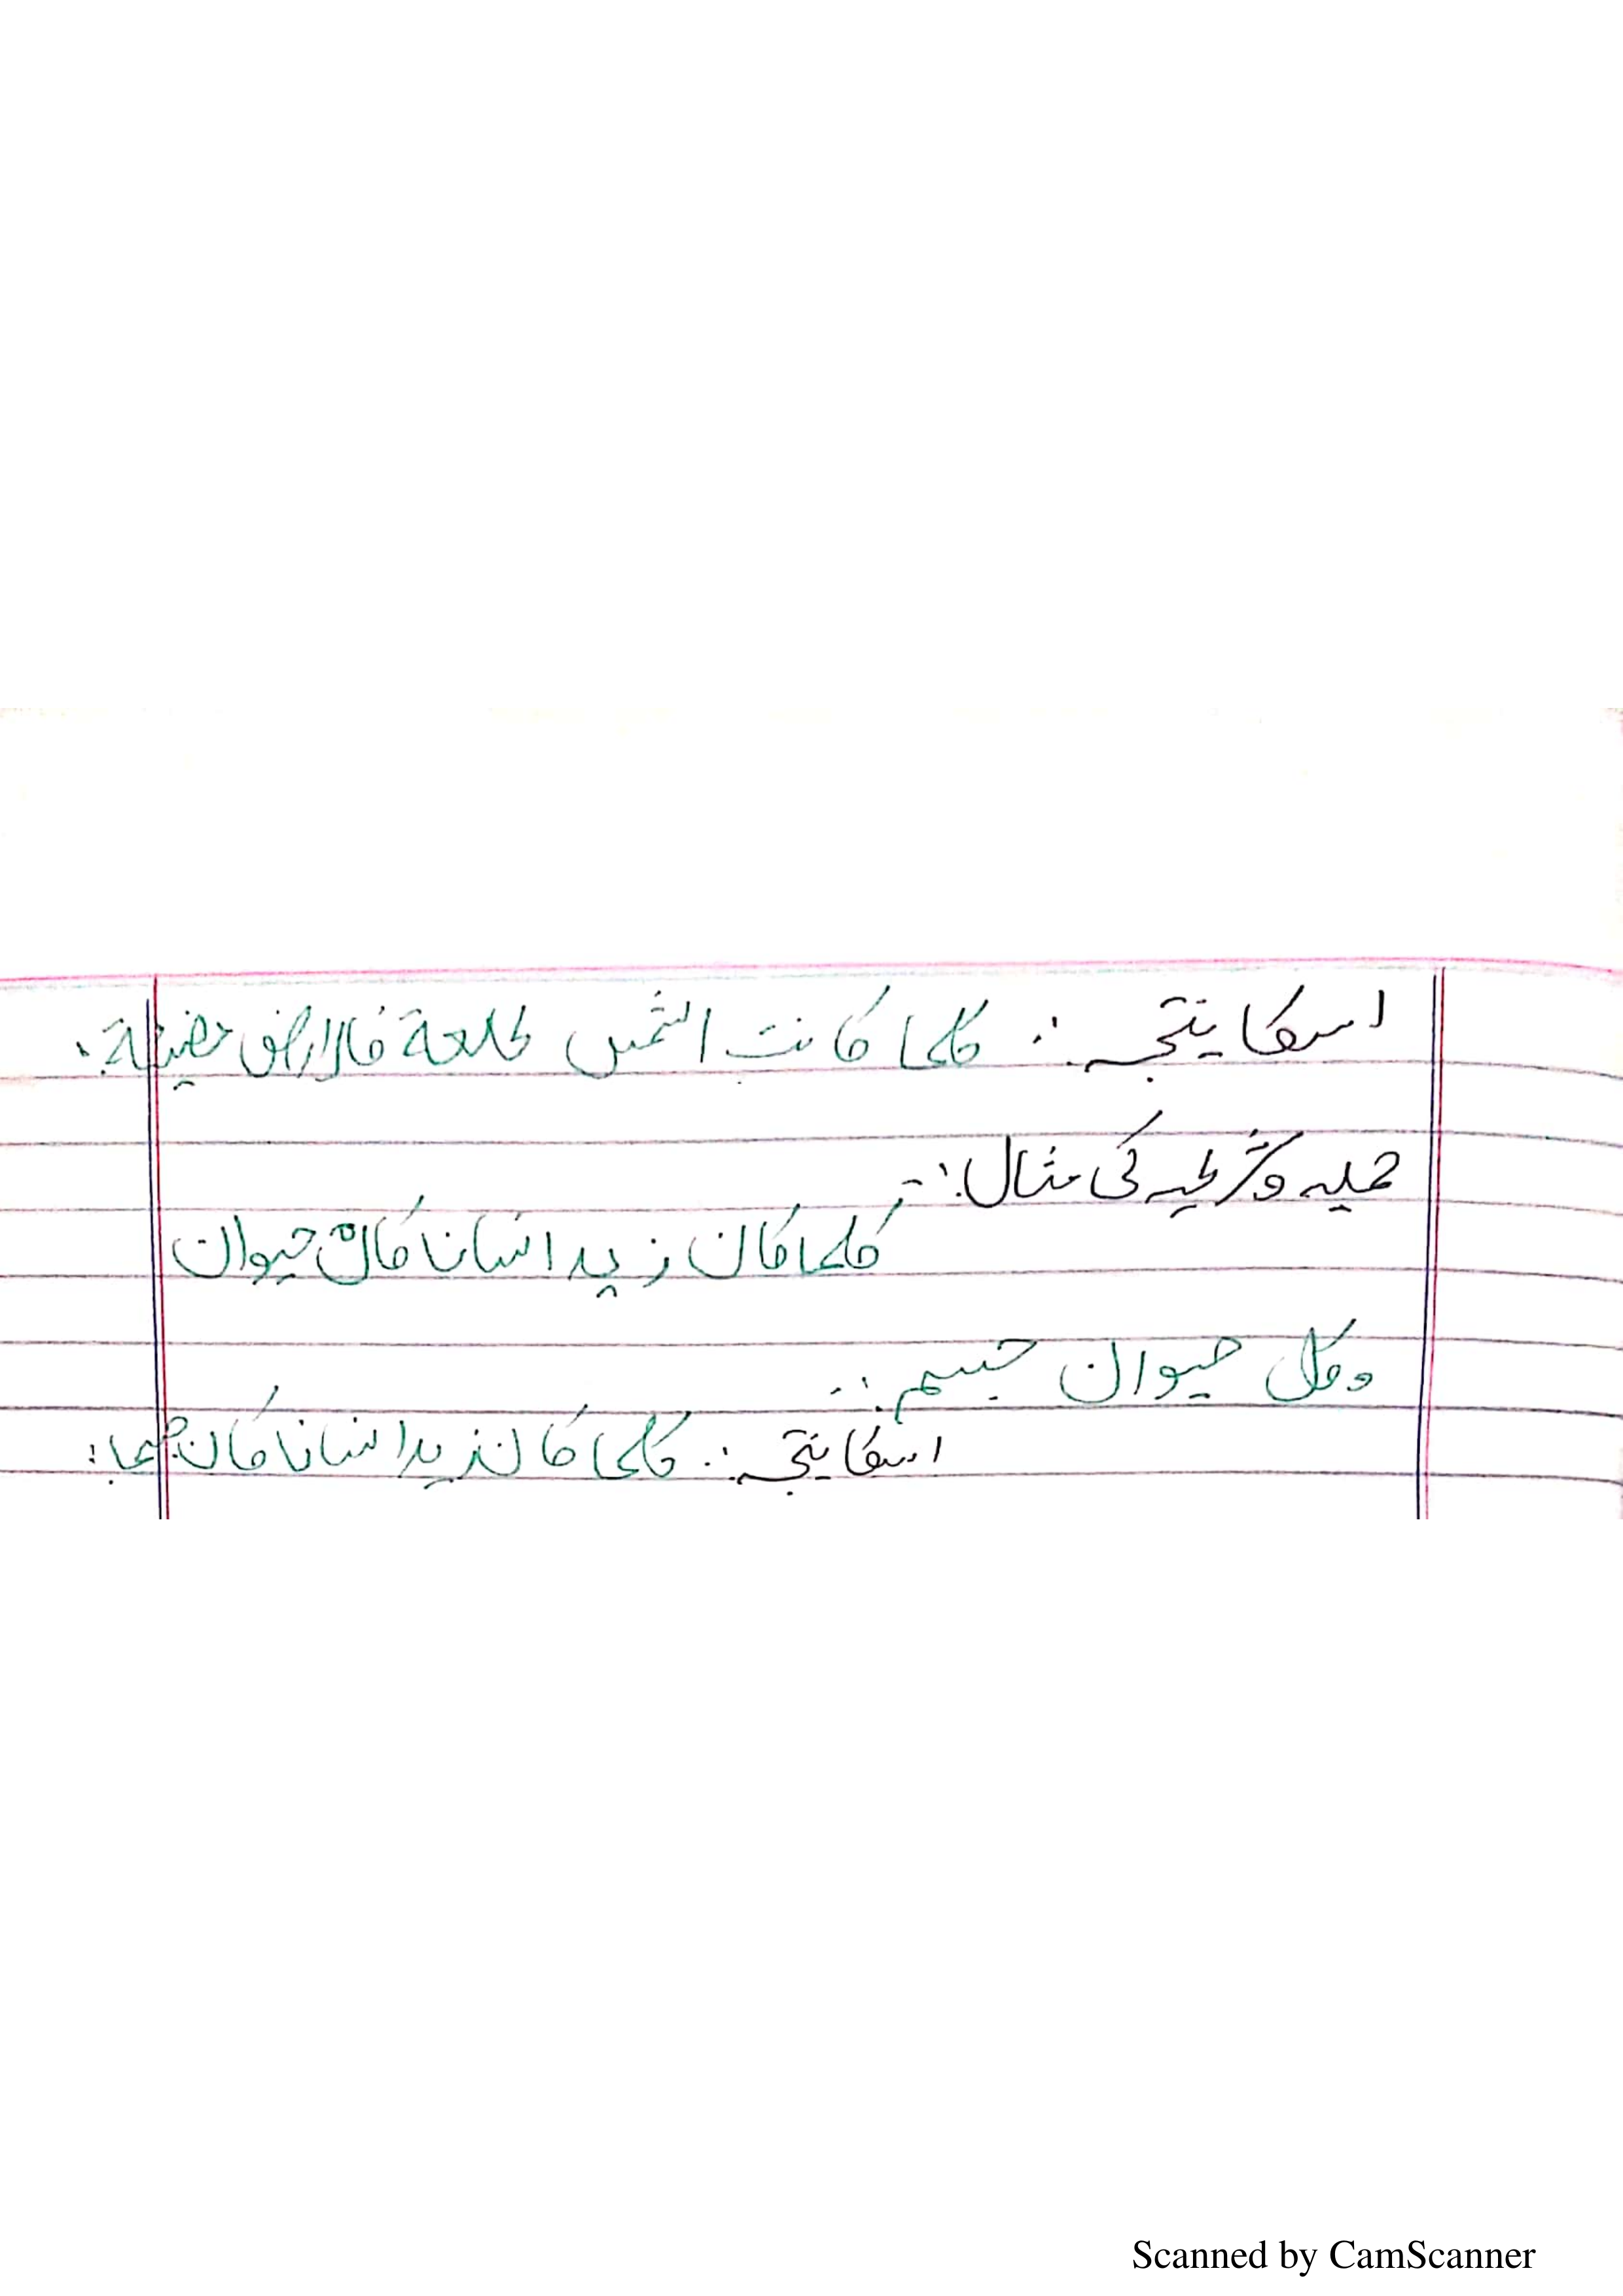 اسکا نتیجہ :. کلما کانت الشمس طلعة فالارض مضیئة.
حملیہ و شرطیہ کی مثال :-
کلما کان زید انسانا کان حیوان
وکل حیوان جسم :-
اسکا نتیجہ :. کلما کان زید انسانا کان جسما:
Scanned by CamScanner